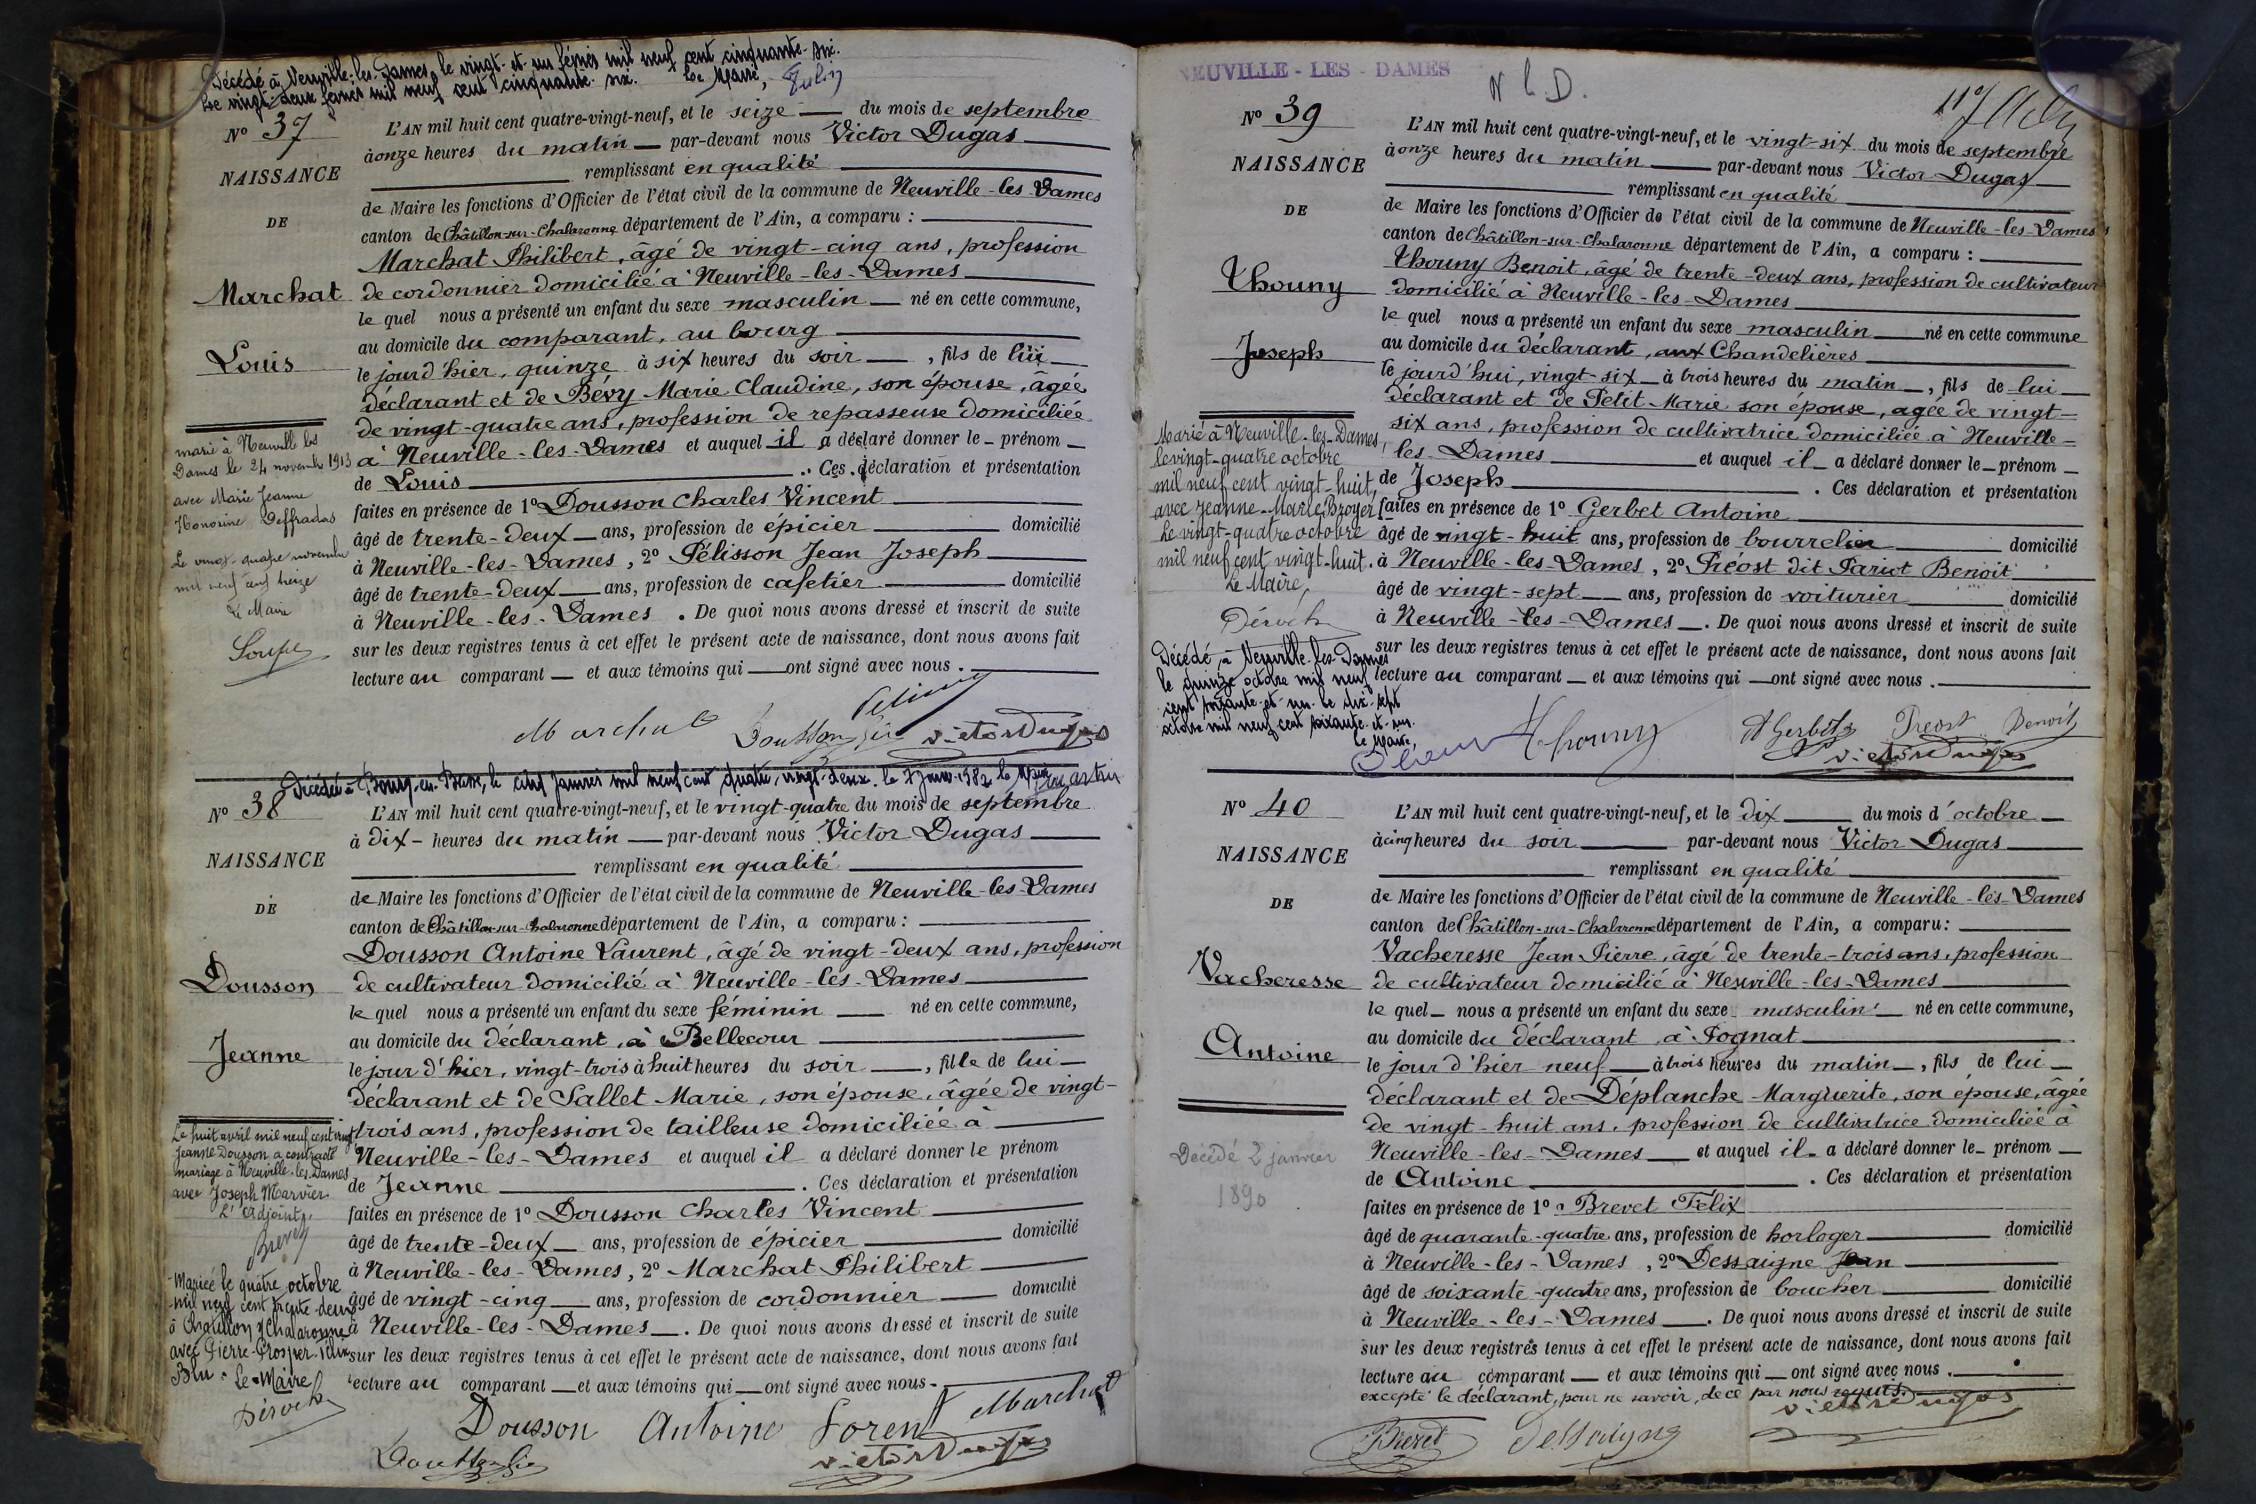 Décédé à Neuville-les-Dames, le vingt-et-un février mil neuf cent cinquante-six.
Le vingt-deux février mil neuf cent cinquante-six. Le Maire,
N° 37
NAISSANCE
DE
Marchat
Louis
marié à Neuville les
Dames le 24 novembre 1913
avec Marie Jeanne
Honorine Deffradas
Le vingt-quatre novembre
mil neuf cent treize
Le Maire
L'AN mil huit cent quatre-vingt-neuf, et le seize du mois de septembre
à onze heures du matin par-devant nous Victor Dugas
remplissant en qualité
de Maire les fonctions d'Officier de l'état civil de la commune de Neuville-les-Dames
canton de Châtillon-sur-Chalaronne département de l'Ain, a comparu :
Marchat Philibert, âgé de vingt-cinq ans, profession
de cordonnier domicilié à Neuville-les-Dames
le quel nous a présenté un enfant du sexe masculin né en cette commune,
au domicile du comparant, au bourg
le jourd'hier, quinze à six heures du soir, fils de lui
déclarant et de Bévy Marie Claudine, son épouse, âgée
de vingt-quatre ans, profession de repasseuse domiciliée
à Neuville-les-Dames et auquel il a déclaré donner le prénom
de Louis. Ces déclaration et présentation
faites en présence de 1° Dousson Charles Vincent
âgé de trente-deux ans, profession de épicier domicilié
à Neuville-les-Dames, 2° Pélisson Jean Joseph
âgé de trente-deux ans, profession de cafetier domicilié
à Neuville-les-Dames. De quoi nous avons dressé et inscrit de suite
sur les deux registres tenus à cet effet le présent acte de naissance, dont nous avons fait
lecture au comparant et aux témoins qui ont signé avec nous.
Marchat Victor Dugas
Décédée à Bourg-en-Bresse, le cinq janvier mil neuf cent quatre-vingt-deux. le 7 janv. 1982 le Maire
N° 38
NAISSANCE
DE
Dousson
Jeanne
Le huit avril mil neuf cent vingt
Jeanne Dousson a contracté
mariage à Neuville-les-Dames
avec Joseph Marvier
L'Adjoint,
Mariée le quatre octobre
mil neuf cent trente-deux
à Chatillon s/Chalaronne
avec Pierre-Prosper
Blu. Le Maire
L'AN mil huit cent quatre-vingt-neuf, et le vingt-quatre du mois de septembre
à dix heures du matin par-devant nous Victor Dugas
remplissant en qualité
de Maire les fonctions d'Officier de l'état civil de la commune de Neuville-les-Dames
canton de Châtillon-sur-Chalaronne département de l'Ain, a comparu :
Dousson Antoine Laurent, âgé de vingt-deux ans, profession
de cultivateur domicilié à Neuville-les-Dames
le quel nous a présenté un enfant du sexe féminin né en cette commune,
au domicile du déclarant, à Bellecour
le jour d'hier, vingt-trois à huit heures du soir, fille de lui
déclarant et de Sallet Marie, son épouse, âgée de vingt-
trois ans, profession de tailleuse domiciliée à
Neuville-les-Dames et auquel il a déclaré donner le prénom
de Jeanne. Ces déclaration et présentation
faites en présence de 1° Dousson Charles Vincent
âgé de trente-deux ans, profession de épicier domicilié
à Neuville-les-Dames, 2° Marchat Philibert
âgé de vingt-cinq ans, profession de cordonnier domicilié
à Neuville-les-Dames. De quoi nous avons dressé et inscrit de suite
sur les deux registres tenus à cet effet le présent acte de naissance, dont nous avons fait
lecture au comparant et aux témoins qui ont signé avec nous.
Dousson Antoine Loren Marchat
Victor Dugas
NEUVILLE - LES - DAMES
N l D.
N° 39
NAISSANCE
DE
Thouny
Joseph
Marié à Neuville-les-Dames,
le vingt-quatre octobre
mil neuf cent vingt-huit,
avec Jeanne-Marie Broyer
Le vingt-quatre octobre
mil neuf cent vingt-huit.
Le Maire,
Décédé à Neuville-les-Dames
le quinze octobre mil neuf
cent soixante-et-un. le dix-sept
octobre mil neuf cent soixante-et-un.
Le Maire,
L'AN mil huit cent quatre-vingt-neuf, et le vingt-six du mois de septembre
à onze heures du matin par-devant nous Victor Dugas
remplissant en qualité
de Maire les fonctions d'Officier de l'état civil de la commune de Neuville-les-Dames
canton de Châtillon-sur-Chalaronne département de l'Ain, a comparu :
Thouny Benoit, âgé de trente-deux ans, profession de cultivateur
domicilié à Neuville-les-Dames
le quel nous a présenté un enfant du sexe masculin né en cette commune
au domicile du déclarant, aux Chandelières
le jourd'hui, vingt-six à trois heures du matin, fils de lui
déclarant et de Petit Marie son épouse, agée de vingt-
six ans, profession de cultivatrice domiciliée à Neuville-
les-Dames et auquel il a déclaré donner le prénom
de Joseph. Ces déclaration et présentation
faites en présence de 1° Gerbet Antoine
âgé de vingt-huit ans, profession de bourrelier domicilié
à Neuville-les-Dames, 2° Préost dit Pariot Benoit
âgé de vingt-sept ans, profession de voiturier domicilié
à Neuville-les-Dames. De quoi nous avons dressé et inscrit de suite
sur les deux registres tenus à cet effet le présent acte de naissance, dont nous avons fait
lecture au comparant et aux témoins qui ont signé avec nous.
Thouny Preost Benoit
Victor Dugas
N° 40
NAISSANCE
DE
Vacheresse
Antoine
Décédé 2 janvier
1890
L'AN mil huit cent quatre-vingt-neuf, et le dix du mois d'octobre
à cinq heures du soir par-devant nous Victor Dugas
remplissant en qualité
de Maire les fonctions d'Officier de l'état civil de la commune de Neuville-les-Dames
canton de Châtillon-sur-Chalaronne département de l'Ain, a comparu :
Vacheresse Jean Pierre, âgé de trente-trois ans, profession
de cultivateur domicilié à Neuville-les-Dames
le quel nous a présenté un enfant du sexe masculin né en cette commune,
au domicile du déclarant à Pognat
le jour d'hier neuf à trois heures du matin, fils de lui
déclarant et de Déplanche Marguerite, son épouse, âgée
de vingt-huit ans, profession de cultivatrice domiciliée à
Neuville-les-Dames et auquel il a déclaré donner le prénom
de Antoine. Ces déclaration et présentation
faites en présence de 1° Brevet Félix
âgé de quarante-quatre ans, profession de horloger domicilié
à Neuville-les-Dames, 2° Dessaigne Jean
âgé de soixante-quatre ans, profession de boucher domicilié
à Neuville-les-Dames. De quoi nous avons dressé et inscrit de suite
sur les deux registres tenus à cet effet le présent acte de naissance, dont nous avons fait
lecture au comparant et aux témoins qui ont signé avec nous.
excepté le déclarant, pour ne savoir, de ce par nous requis.
Victor Dugas
Brevet